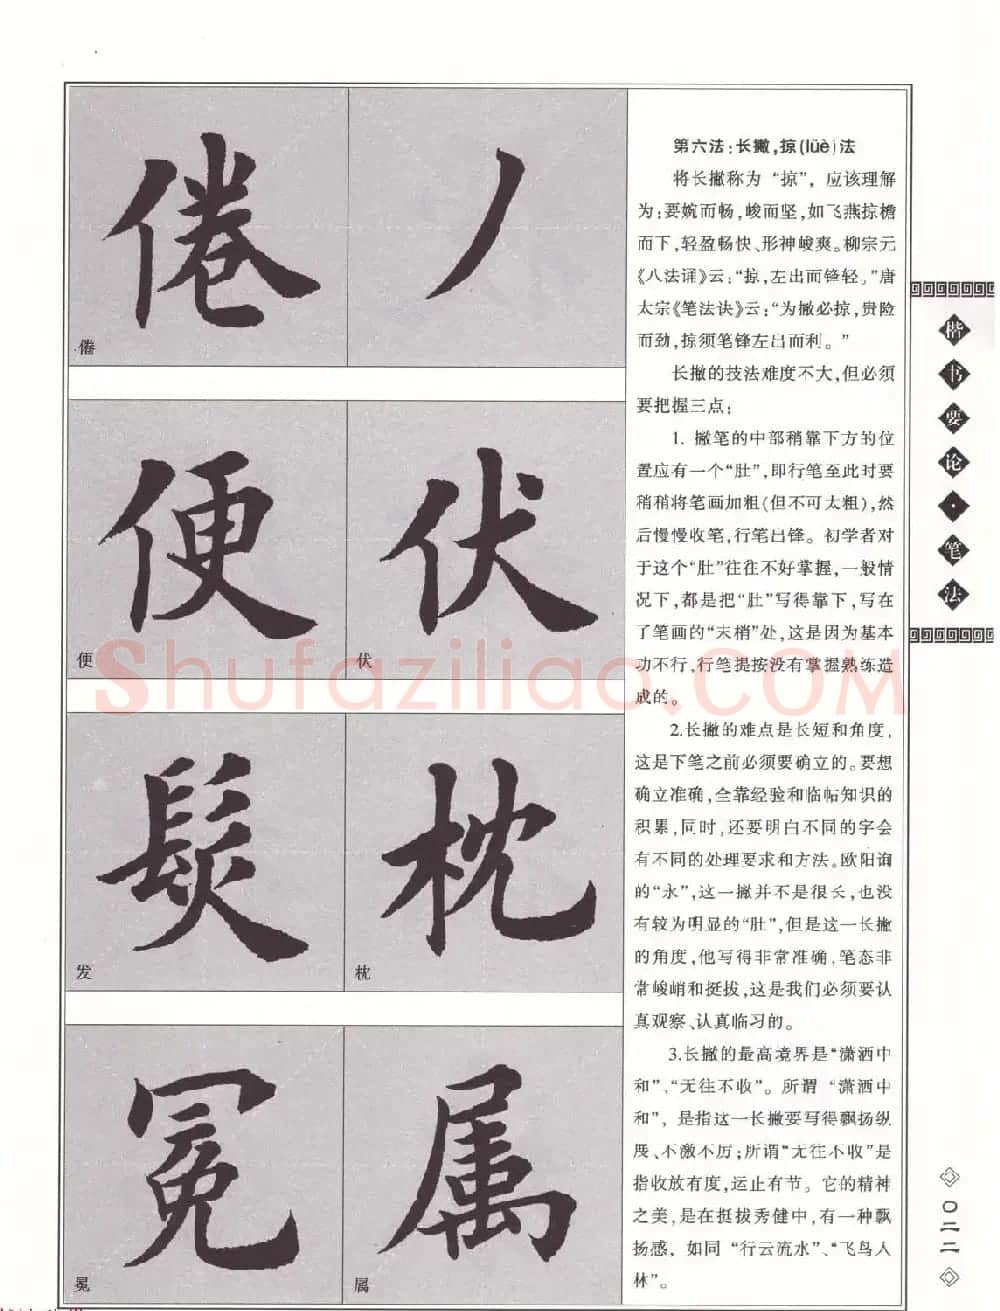 倦
丿
倦
便
伏
便
伏
髮
枕
发
枕
冕
属
冕
属
第六法:长撇,掠(lüè)法
将长撇称为“掠”，应该理解
为:要婉而畅,峻而坚,如飞燕掠檐
而下,轻盈畅快、形神峻爽。柳宗元
《八法诵》云:“掠,左出而锋轻。”唐
太宗《笔法诀》云:“为撇必掠,贵险
而劲,掠须笔锋左出而利。”
长撇的技法难度不大,但必须
要把握三点:
1. 撇笔的中部稍靠下方的位
置应有一个“肚”,即行笔至此时要
稍稍将笔画加粗(但不可太粗),然
后慢慢收笔,行笔出锋。初学者对
于这个“肚”往往不好掌握,一般情
况下,都是把“肚”写得靠下,写在
了笔画的“末梢”处,这是因为基本
功不行,行笔提按没有掌握熟练造
成的。
2.长撇的难点是长短和角度,
这是下笔之前必须要确立的。要想
确立准确,全靠经验和临帖知识的
积累,同时,还要明白不同的字会
有不同的处理要求和方法。欧阳询
的“永”,这一撇并不是很长,也没
有较为明显的“肚”,但是这一长撇
的角度,他写得非常准确,笔态非
常峻峭和挺拔,这是我们必须要认
真观察、认真临习的。
3.长撇的最高境界是“潇洒中
和”、“无往不收”。所谓“潇洒中
和”，是指这一长撇要写得飘扬纵
展、不激不厉;所谓“无往不收”是
指收放有度,运止有节。它的精神
之美,是在挺拔秀健中,有一种飘
扬感，如同“行云流水”、“飞鸟入
林”。
楷书要论·笔法
〇二二
Shufaziliao.COM